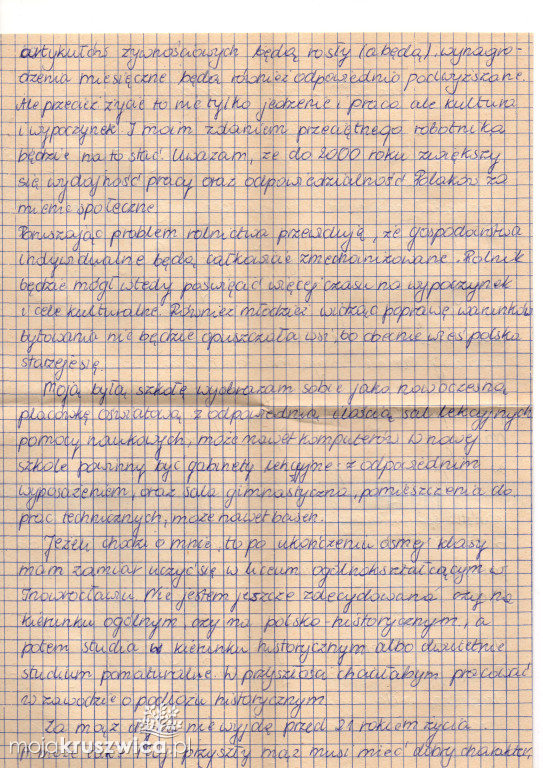 artykułów żywnościowych będą rosły (a będą) wynagro-
dzenia miesięczne będą również odpowiednio podwyższane.
Ale przecież życie to nie tylko jedzenie i praca ale kultura
i wypoczynek I moim zdaniem przeciętnego robotnika
będzie na to stać. Uważam, że do 2000 roku zwiększy
się wydajność pracy oraz odpowiedzialność Polaków za
mienie społeczne
Poruszając problem rolnictwa przewiduję, że gospodarstwa
indywidualne będą całkowicie zmechanizowane. Rolnik
będzie mógł wtedy poświęcić więcej czasu na wypoczynek
i cele kulturalne. Również młodzież widząc poprawę warunków
bytowania nie będzie opuszczała wsi, bo obecnie wieś polska
starzeje się.
Moją byłą szkołę wyobrażam sobie jako nowoczesną
placówkę oświatową z odpowiednią ilością sal lekcyjnych
pomocy naukowych, może nawet komputerów w nowej
szkole powinny być gabinety lekcyjne z odpowiednim
wyposażeniem, oraz sala gimnastyczna, pomieszczenia do
prac technicznych, może nawet basen.
Jeżeli chodzi o mnie, to po ukończeniu ósmej klasy
mam zamiar uczyć się w liceum ogólnokształcącym w
Inowrocławiu. Nie jestem jeszcze zdecydowana czy na
kierunku ogólnym, czy na polsko-historycznym, a
potem studia w kierunku historycznym albo dwuletnie
studium pomaturalne. W przyszłości chciałabym pracować
w zawodzie o podłożu historycznym.
Za mąż nie wyjdę przed 21 rokiem życia.
mój przyszły mąż musi mieć dobry charakter,
mojakruszwica.pl